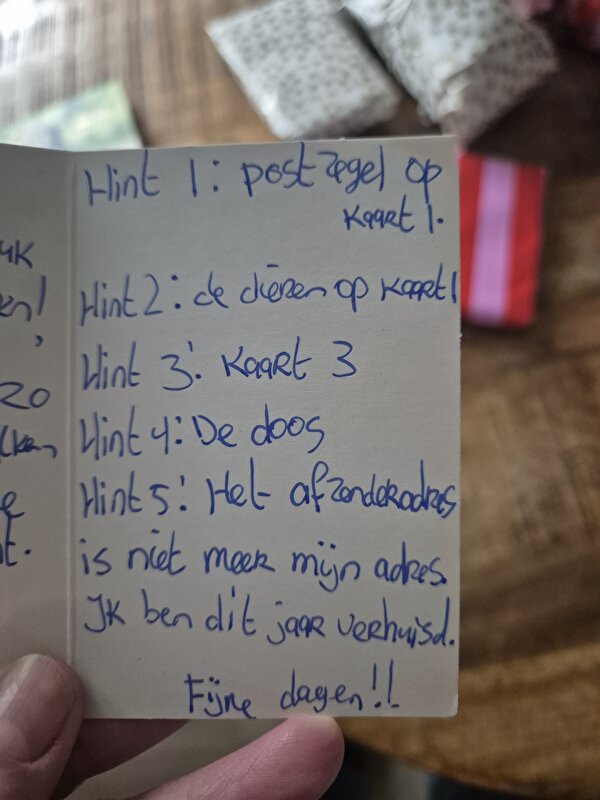 Hint 1: postzegel op
kaart 1.
Hint 2: de dieren op kaart 1
Hint 3: kaart 3
Hint 4: De doos
Hint 5: Het afzenderadres
is niet meer mijn adres.
Ik ben dit jaar verhuisd.
Fijne dagen!!